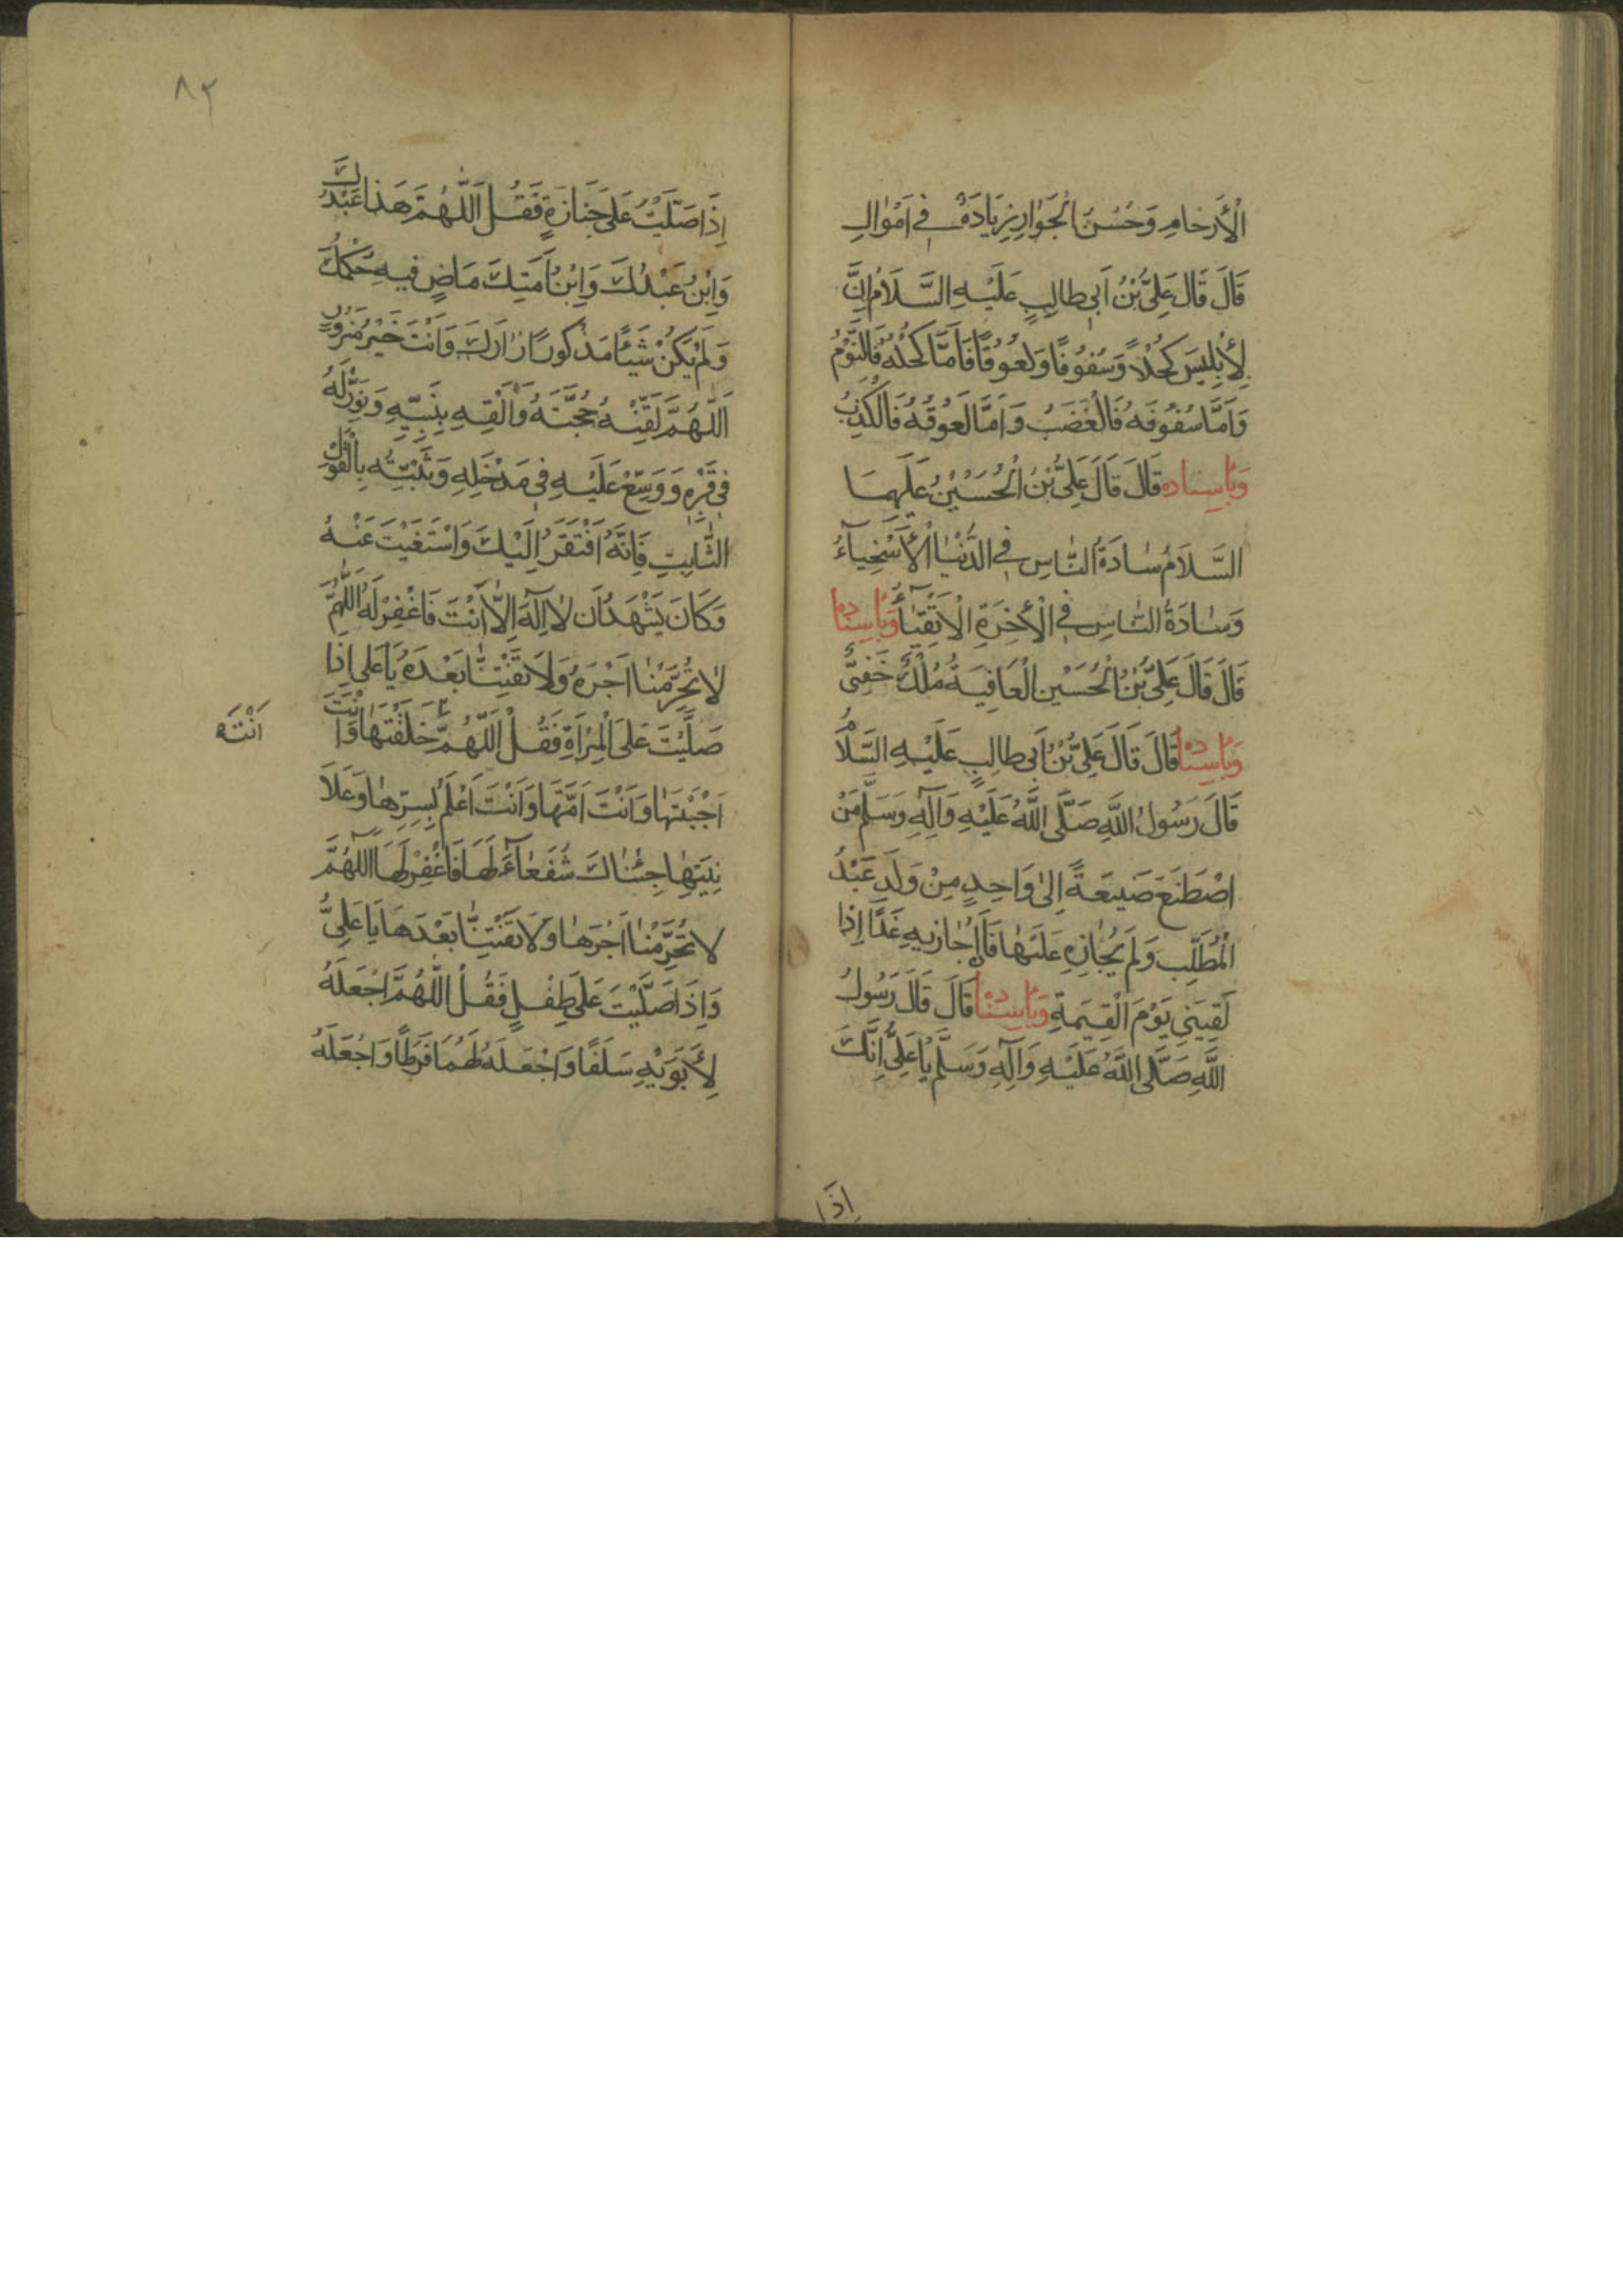 الْأَرْحَامِ وَحُسْنُ الْجَوَارِ زِيَادَةٌ فِي أَمْوَالِ
قَالَ قَالَ عَلِيُّ بْنُ أَبِي طَالِبٍ عَلَيْهِ السَّلَامُ إِنَّ
لِأِبْلِيسَ كُحْلًا وَسُفُوفًا وَلَعُوقًا فَأَمَّا كُحْلُهُ فَالنَّوْمُ
وَأَمَّا سُفُوفُهُ فَالْغَضَبُ وَأَمَّا لَعُوقُهُ فَالْكَذِبُ
وَبِأسناده قَالَ قَالَ عَلِيُّ بْنُ الْحُسَيْنِ عَلَيهِمَا
السَّلَامُ سَادَةُ النَّاسِ فِي الدُّنْيَا الْأَسْخِيَآءُ
وَسَادَةُ النَّاسِ فِي الْأَخِرَةِ الْأَتْقِيَآءُ وَبِأسناده
قَالَ قَالَ عَلِيُّ بْنُ الْحُسَيْنِ الْعَافِيَةُ مُلْكٌ خَفِيٌّ
وَبِأسناده قَالَ قَالَ عَلِيُّ بْنُ أَبِي طَالِبٍ عَلَيْهِ السَّلَامُ
قَالَ رَسُولُ اللَّهِ صَلَّى اللَّهُ عَلَيْهِ وَآلِهِ وَسَلَّمَ مَنْ
اصْطَنَعَ صَنِيعَةً إِلَى وَاحِدٍ مِنْ وَلَدِ عَبْدُ
الْمُطَّلِبِ وَلَمْ يُجَازِهِ عَلَيْهَا فَأَنَا أُجَازِيهِ غَدًا إِذَا
لَقِيَنِي يَوْمَ الْقِيمَةِ وَبِأسناده قَالَ قَالَ رَسُولُ
اللَّهِ صَلَّى اللَّهُ عَلَيْهِ وَآلِهِ وَسَلَّمَ يَا عَلِيُّ إِنَّكَ
إِذَا
٨٢
إِذَا صَلَّيْتَ عَلَى جَنَازَةٍ فَقُلْ اَللَّهُمَّ هَذَا عَبْدُكَ
وَابْنُ عَبْدِكَ وَابْنُ أَمَتِكَ مَاضٍ فِيهِ حُكْمُكَ
وَلَمْ يَكُنْ شَيْئًا مَذْكُورًا زَارَكَ وَأَنْتَ خَيْرُ مَزُورٍ
اَللَّهُمَّ لَقِّنْهُ حُجَّتَهُ وَأَلْقِهِ بِنَبِيِّهِ وَنَوِّرْ لَهُ
فِي قَبْرِهِ وَوَسِّعْ عَلَيْهِ فِي مَدْخَلِهِ وَثَبِّتْهُ بِالْقَوْلِ
الثَّابِتِ فَإِنَّهُ افْتَقَرَ إِلَيْكَ وَاسْتَغْنَيْتَ عَنْهُ
وَكَانَ يَشْهَدُ أَن لَا إِلَهَ إِلَّا أَنْتَ فَاغْفِرْ لَهُ اللَّهُمَّ
لَا تُحَرِّمْنَا أَجْرَهُ وَلَا تَفْتِنَّا بَعْدَهُ يَا عَلِي إِذَا
صَلَّيْتَ عَلَى الْمِرَأَةِ فَقُلْ اَللَّهُمَّ خَلَقْتَهَا وَأَنْتَ
أَحْيَيْتَهَا وَأَنْتَ أَمَتَّهَا وَأَنْتَ أَعْلَمُ بِسِرِّهَا وَعَلَا
نِيَتِهَا جِئْنَاكَ شُفَعَآءَ لَهَا فَاغْفِرْ لَهَا اَللَّهُمَّ
لَا تُحَرِّمْنَا أَجْرَهَا وَلَا تَفْتِنَّا بَعْدَهَا يَا عَلِيُّ
وَإِذَا صَلَّيْتَ عَلَى طِفْلٍ فَقُلْ اللَّهُمَّ اجْعَلْهُ
لِأَبَوَيْهِ سَلَفًا وَاجْعَلْهُ لَهُمَا فَرَطًا وَاجْعَلْهُ